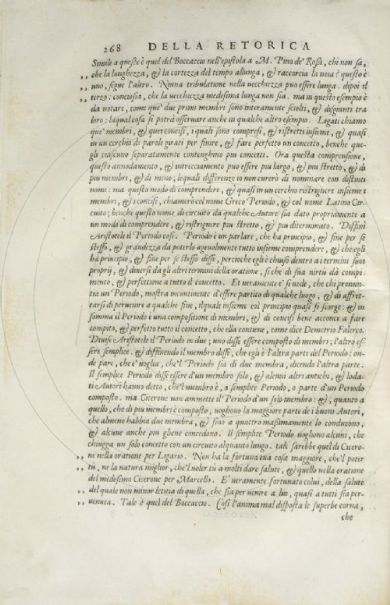 268 DELLA RETORICA
Simile a queste è quel del Boccaccio nell'epistola a M. Pino de' Rossi, chi non sa,
che la lunghezza, & la cortezza del tempo allunga, & raccorcia la noia? questo è
uno, segue l'altro. Niuna tribulatione nella vecchiezza può essere lunga. dipoi il
terzo: conciosia, che la vecchiezza medesima lunga non sia. ma in questo esempio è
da notare, come que' due primi membri sono interamente sciolti, & disgiunti tra
loro: laqual cosa si potrà osservare anche in qualche altro esempio. Legati chiamo
que' membri, & que' concisi, i quali sono compresi, & ristretti insieme, & quasi
in un cerchio di parole tirati per finire, & fare perfetto un concetto, benche que-
gli ciascuno separatamente contenghino più concetti. Ora questa comprensione,
questo annodamento, & intrecciamento può essere più largo, & più stretto, & di
più membri, & di meno; lequali differenze io non curerò di nomenare con distinti
nome: ma questo modo di comprendere, & quasi in un cerchio ristrignere insieme i
membri, & i concisi, chiamerò col nome Greco Periodo, & col nome Latino Cir-
cuito; benche questo nome di circuito da qualche Autore sia dato propriamente a
un modo di comprendere, & ristrignere più stretto, & più determinato. Diffini
Aristotele il Periodo così. Periodo è un parlare, che ha principio, & fine per se
stesso, & grandezza da poterla agevolmente tutto insieme comprendere, & che egli
ha principio, & fine per se stesso disse, percioche egli è chiuso dentro a termini suoi
proprij, & diversi da gli altri termini della oratione, si che di sua virtù dà compi-
mento, & perfettione a tutto il concetto. Et veramente e' si vede, che chi pronun-
tia un Periodo, mostra novamente d'essere partito di qualche luogo, & di affret-
tarsi di pervenire a qualche fine, ilquale insieme col principio quasi si scorge: & in
somma il Periodo è una compositione di membri, & di concisi bene acconci a fare
compito, & perfetto tutto il concetto, che ella contiene, come dice Demetrio Falereo.
Divise Aristotele il Periodo in due; uno disse essere composto di membri; l'altro es-
sere semplice, & diffinendo il membro disse, che egli è l'altra parte del Periodo; on-
de pare, che e' voglia, che'l Periodo sia di due membra, dicendo l'altra parte.
Il semplice Periodo disse essere d'un membro solo, & alcuni altri antichi, & loda-
ti Autori hanno detto, che'l membro è, o semplice Periodo, o parte d'un Periodo
composto. ma Cicerone non ammette il Periodo d'un solo membro: &, quanto a
quello, che di più membri è composto, vogliono la maggior parte de i buoni Autori,
che almeno habbia due membra, & sino a quattro massimamente lo conducono,
& alcune anche più gliene concedono. Il semplice Periodo vogliono alcuni, che
chiugga un solo concetto con un circuito alquanto lungo. tali sarebbe quel di Cicero-
ne nella oratione per Ligario. Non ha la fortuna tua cosa maggiore, che'l poter
tu, ne la natura miglior, che'l voler tu a molti dare salute, & quello nella oratione
del medesimo Cicerone per Marcello. E' veramente fortunato colui, della salute
del quale non minor letitia di quella, che sia per venire a lui, quasi a tutti sia per-
venuta. Tale è quel del Boccaccio. Così l'anima mal disposta le superbe corna,
che